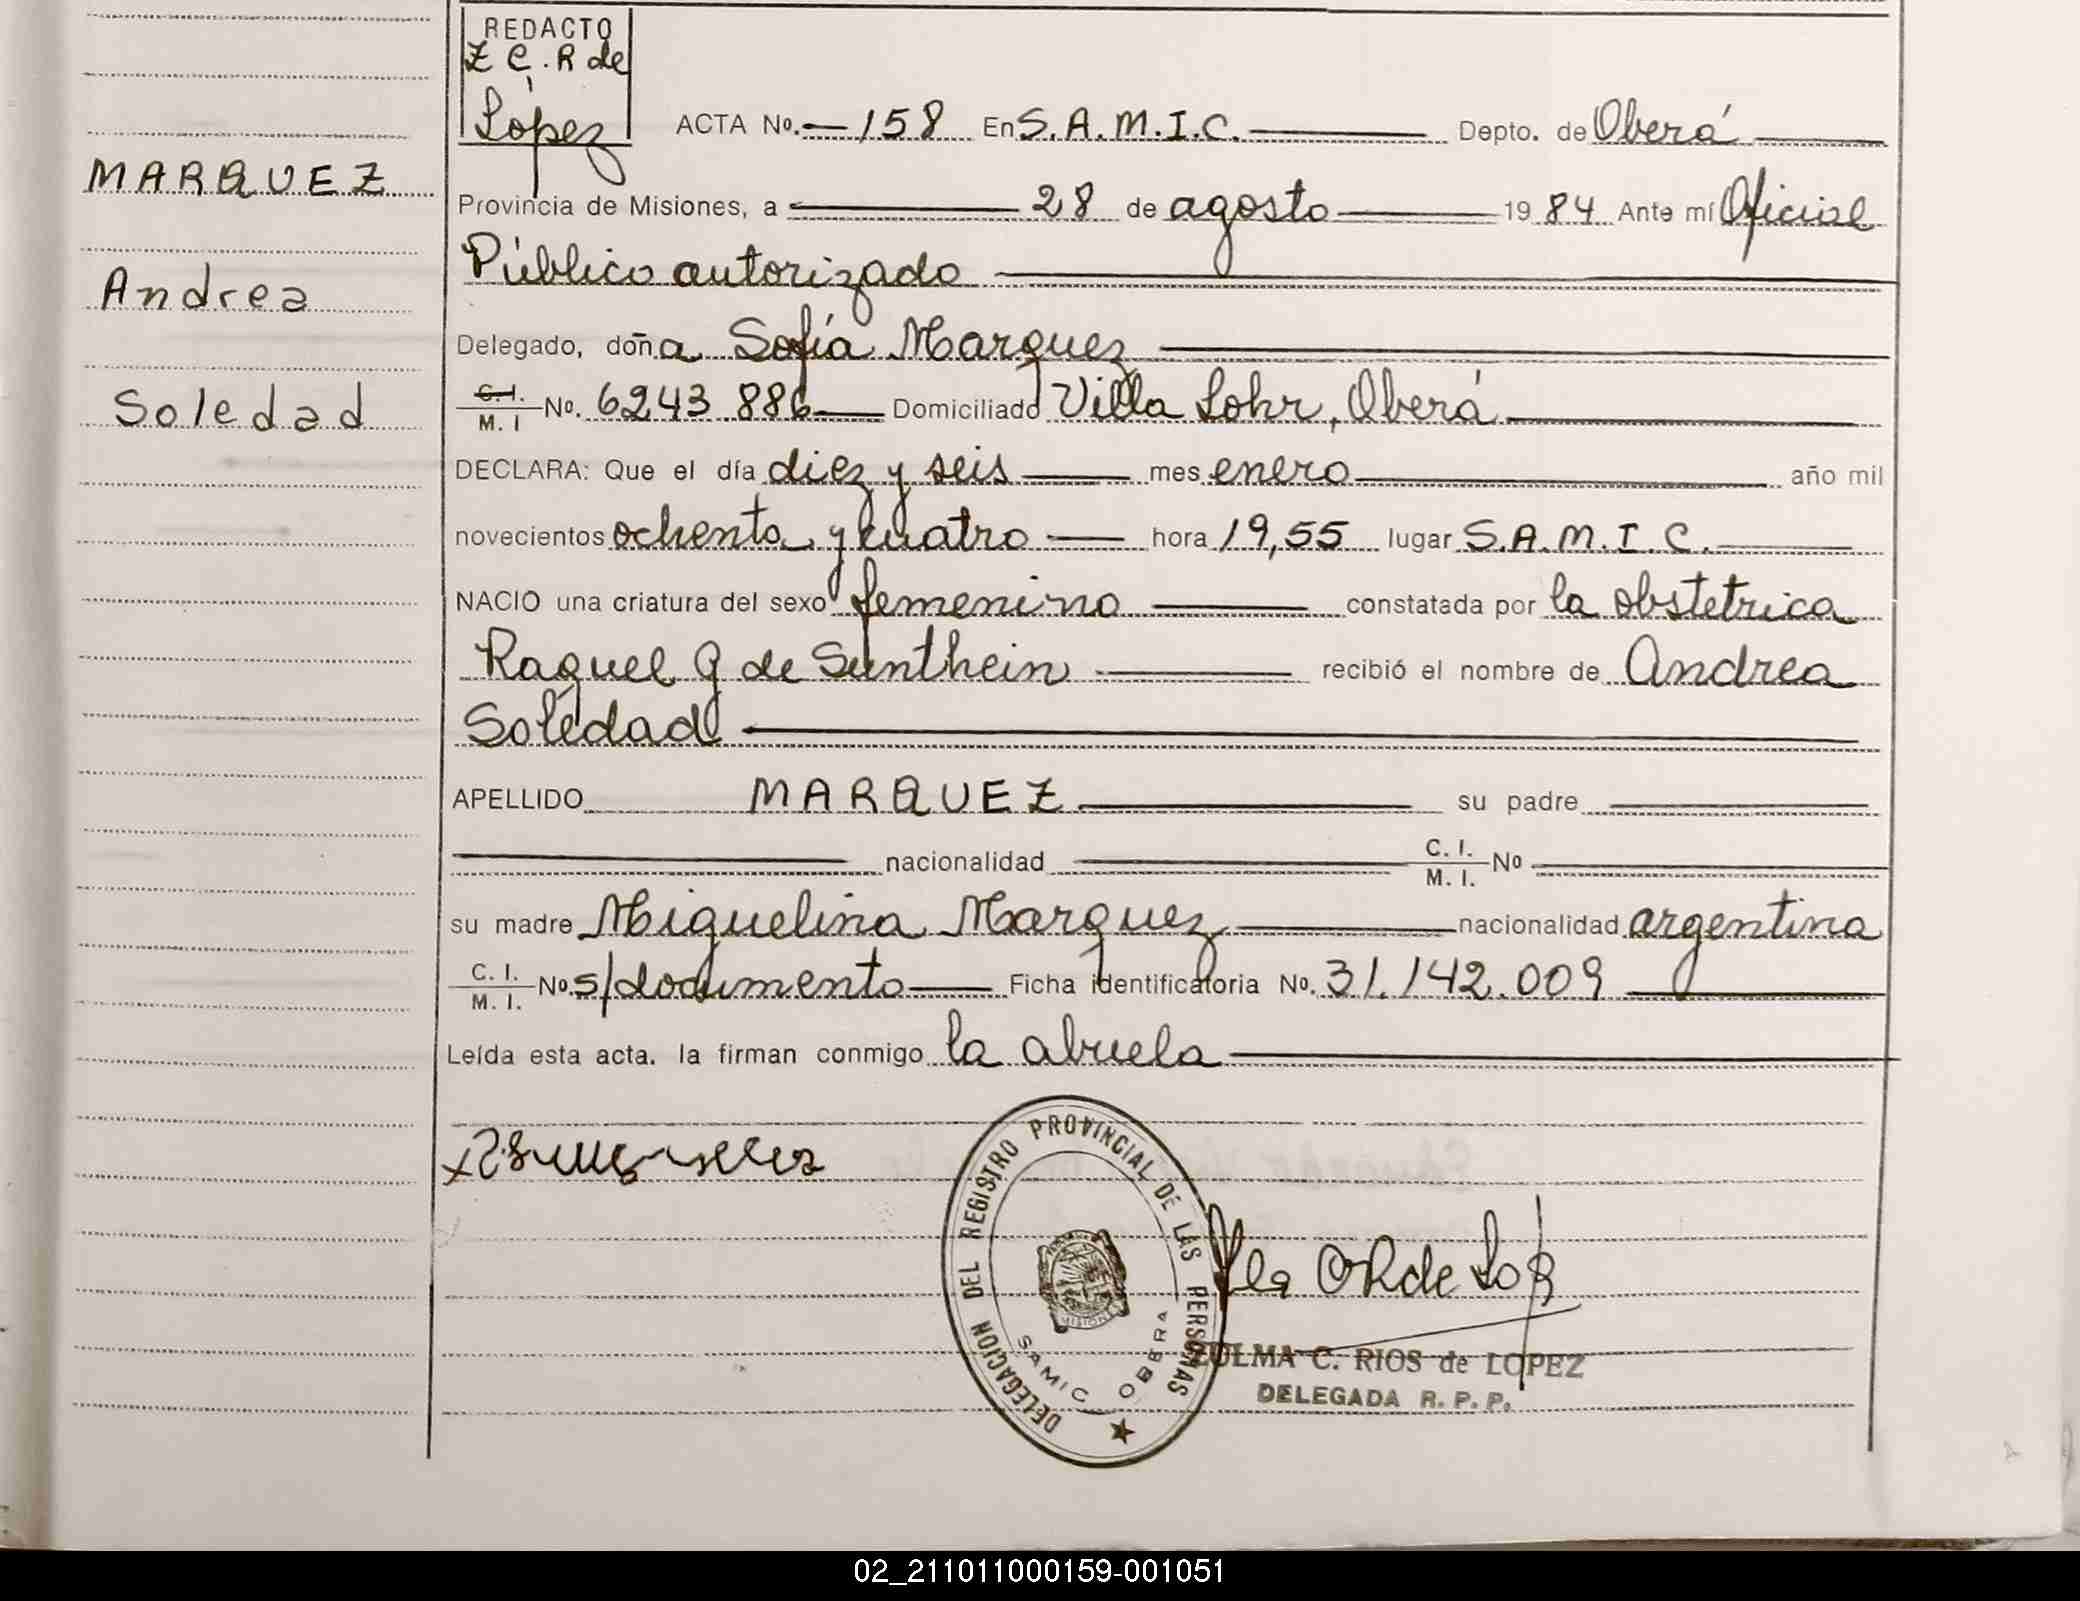 REDACTO
Z C. R de
López
ACTA No. 158 En S.A.M.I.C. Depto. de Oberá
MARQUEZ
Provincia de Misiones, a 28 de agosto 1984 Ante mí Oficial
Público autorizado
Andrea
Delegado, doña Sofía Marquez
Soledad
C.I. M. I No. 6243 886 Domiciliado Villa Lohr, Oberá
DECLARA: Que el día diez y seis mes enero año mil
novecientos ochenta y cuatro hora 19,55 lugar S.A.M.I.C.
NACIO una criatura del sexo femenino constatada por la obstetrica
Raquel G de Sunthein recibió el nombre de Andrea
Soledad
APELLIDO MARQUEZ su padre
nacionalidad C. I. M. I. No
su madre Miguelina Marquez nacionalidad argentina
C. I. M. I. No. s/documento Ficha identificatoria No. 31.142.009
Leída esta acta. la firman conmigo la abuela
DELEGACION DEL REGISTRO PROVINCIAL DE LAS PERSONAS
MISIONES
SAMIC OBERA
ZULMA C. RIOS de LOPEZ
DELEGADA R. P. P.
02_211011000159-001051